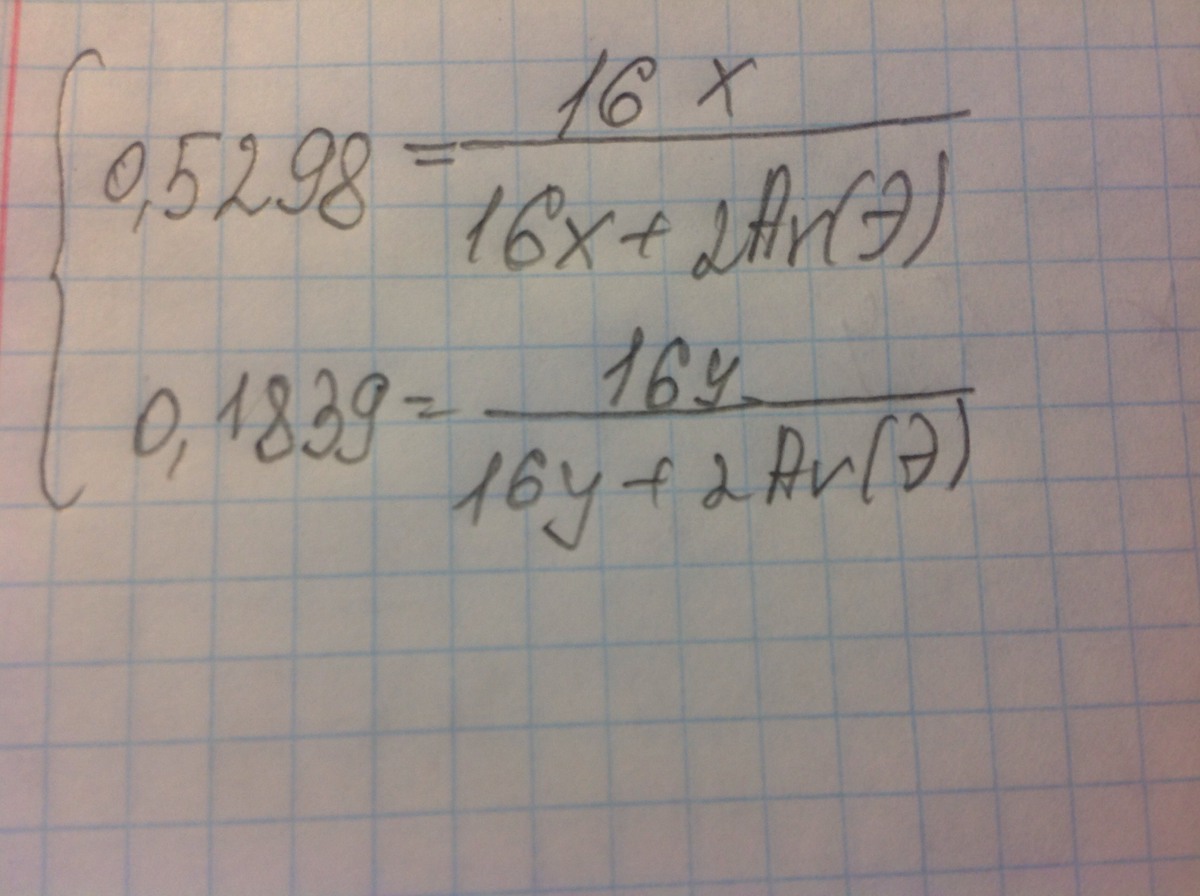 0,5298 = 16 x / 16x + 2Ar(Э)
0,1839 = 16y / 16y + 2Ar(Э)